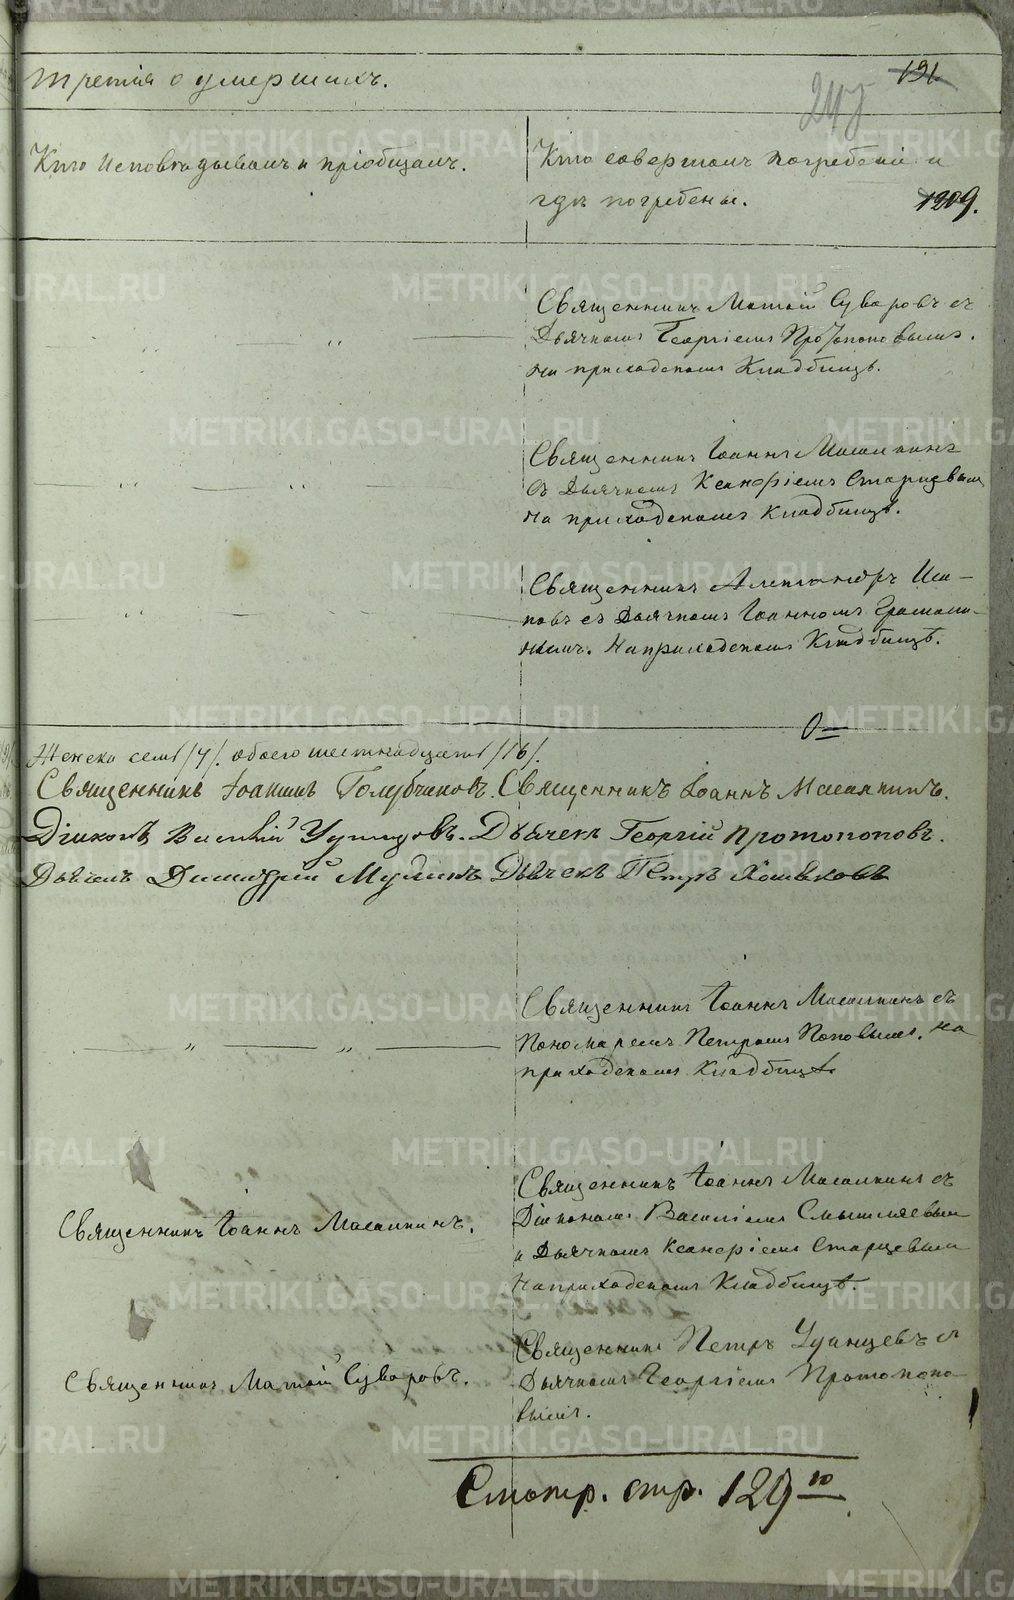 третія о умершихъ.
191.
247
Кто исповѣдывалъ и пріобщалъ.
Кто совершалъ погребеніе и
гдѣ погребены.
1209.
Священникъ Матѳій Суваровъ съ
Дьячкомъ Георгіемъ Протопоповымъ.
на приходскомъ Кладбищѣ.
Священникъ Іоаннъ Масалкинъ
съ Дьячкомъ Ксанѳіемъ Старцевым
на приходскомъ кладбищѣ.
Священникъ Александръ
съ Дьячкомъ Іоанномъ
На приходскомъ Кладбищѣ.
Женска семь /7/. обоего шестнадцать /16/.
Священникъ Іоакимъ Голубчиковъ. Священникъ Іоаннъ Масалкинъ.
Діаконъ Василій Дьячекъ Георгій Протопоповъ.
Дьячекъ Димитрій Мулинъ Дьячекъ Петръ Хошвковъ
Священникъ Іоаннъ Масалкинъ съ
Пономаремъ Петромъ Поповымъ. на
приходскомъ Кладбищѣ.
Священникъ Іоаннъ Масалкинъ.
Священникъ Іоаннъ Масалкинъ съ
Діакономъ Василіемъ Смышляевым
и Дьячкомъ Ксанѳіемъ Старцевым
На приходскомъ Кладбищѣ.
Священникъ Матѳій Суваровъ.
Священникъ Петръ съ
Дьячкомъ Георгіемъ Протопопо-
вымъ.
Смотр. стр. 1210
METRIKI.GASO-URAL.RU